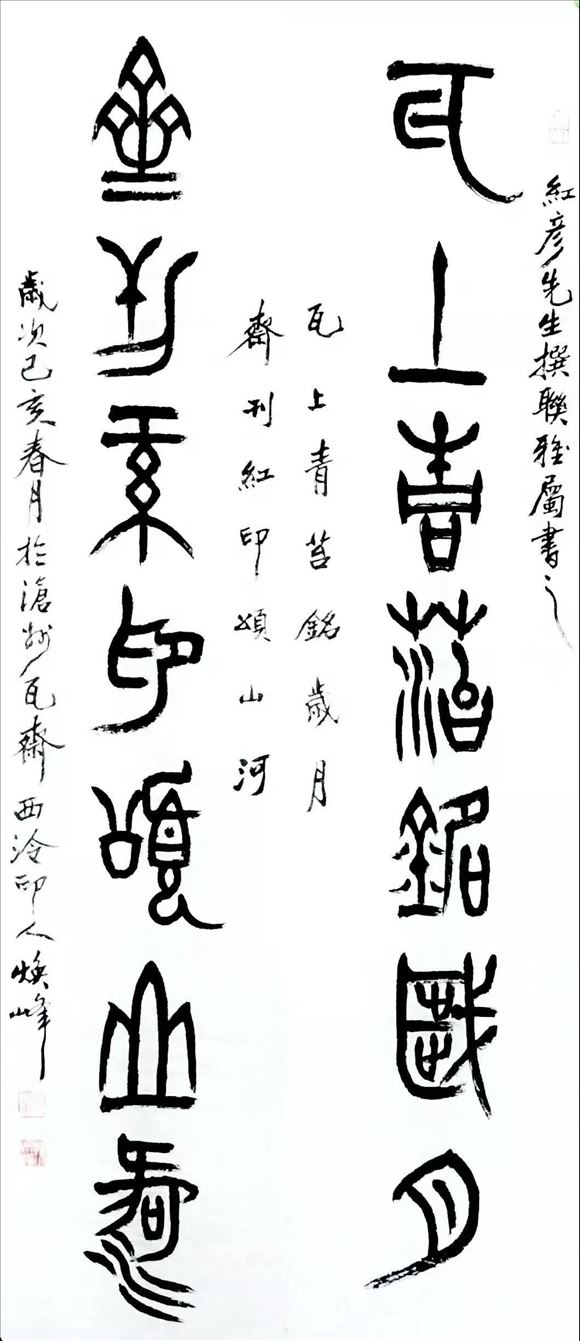 紅彥先生撰聯雅屬書之
瓦上青苔銘歲月
瓦上青苔銘歲月
齋刊紅印頌山河
齋刊紅印頌山河
歲次己亥春月於滄州瓦齋西泠印人煥峰